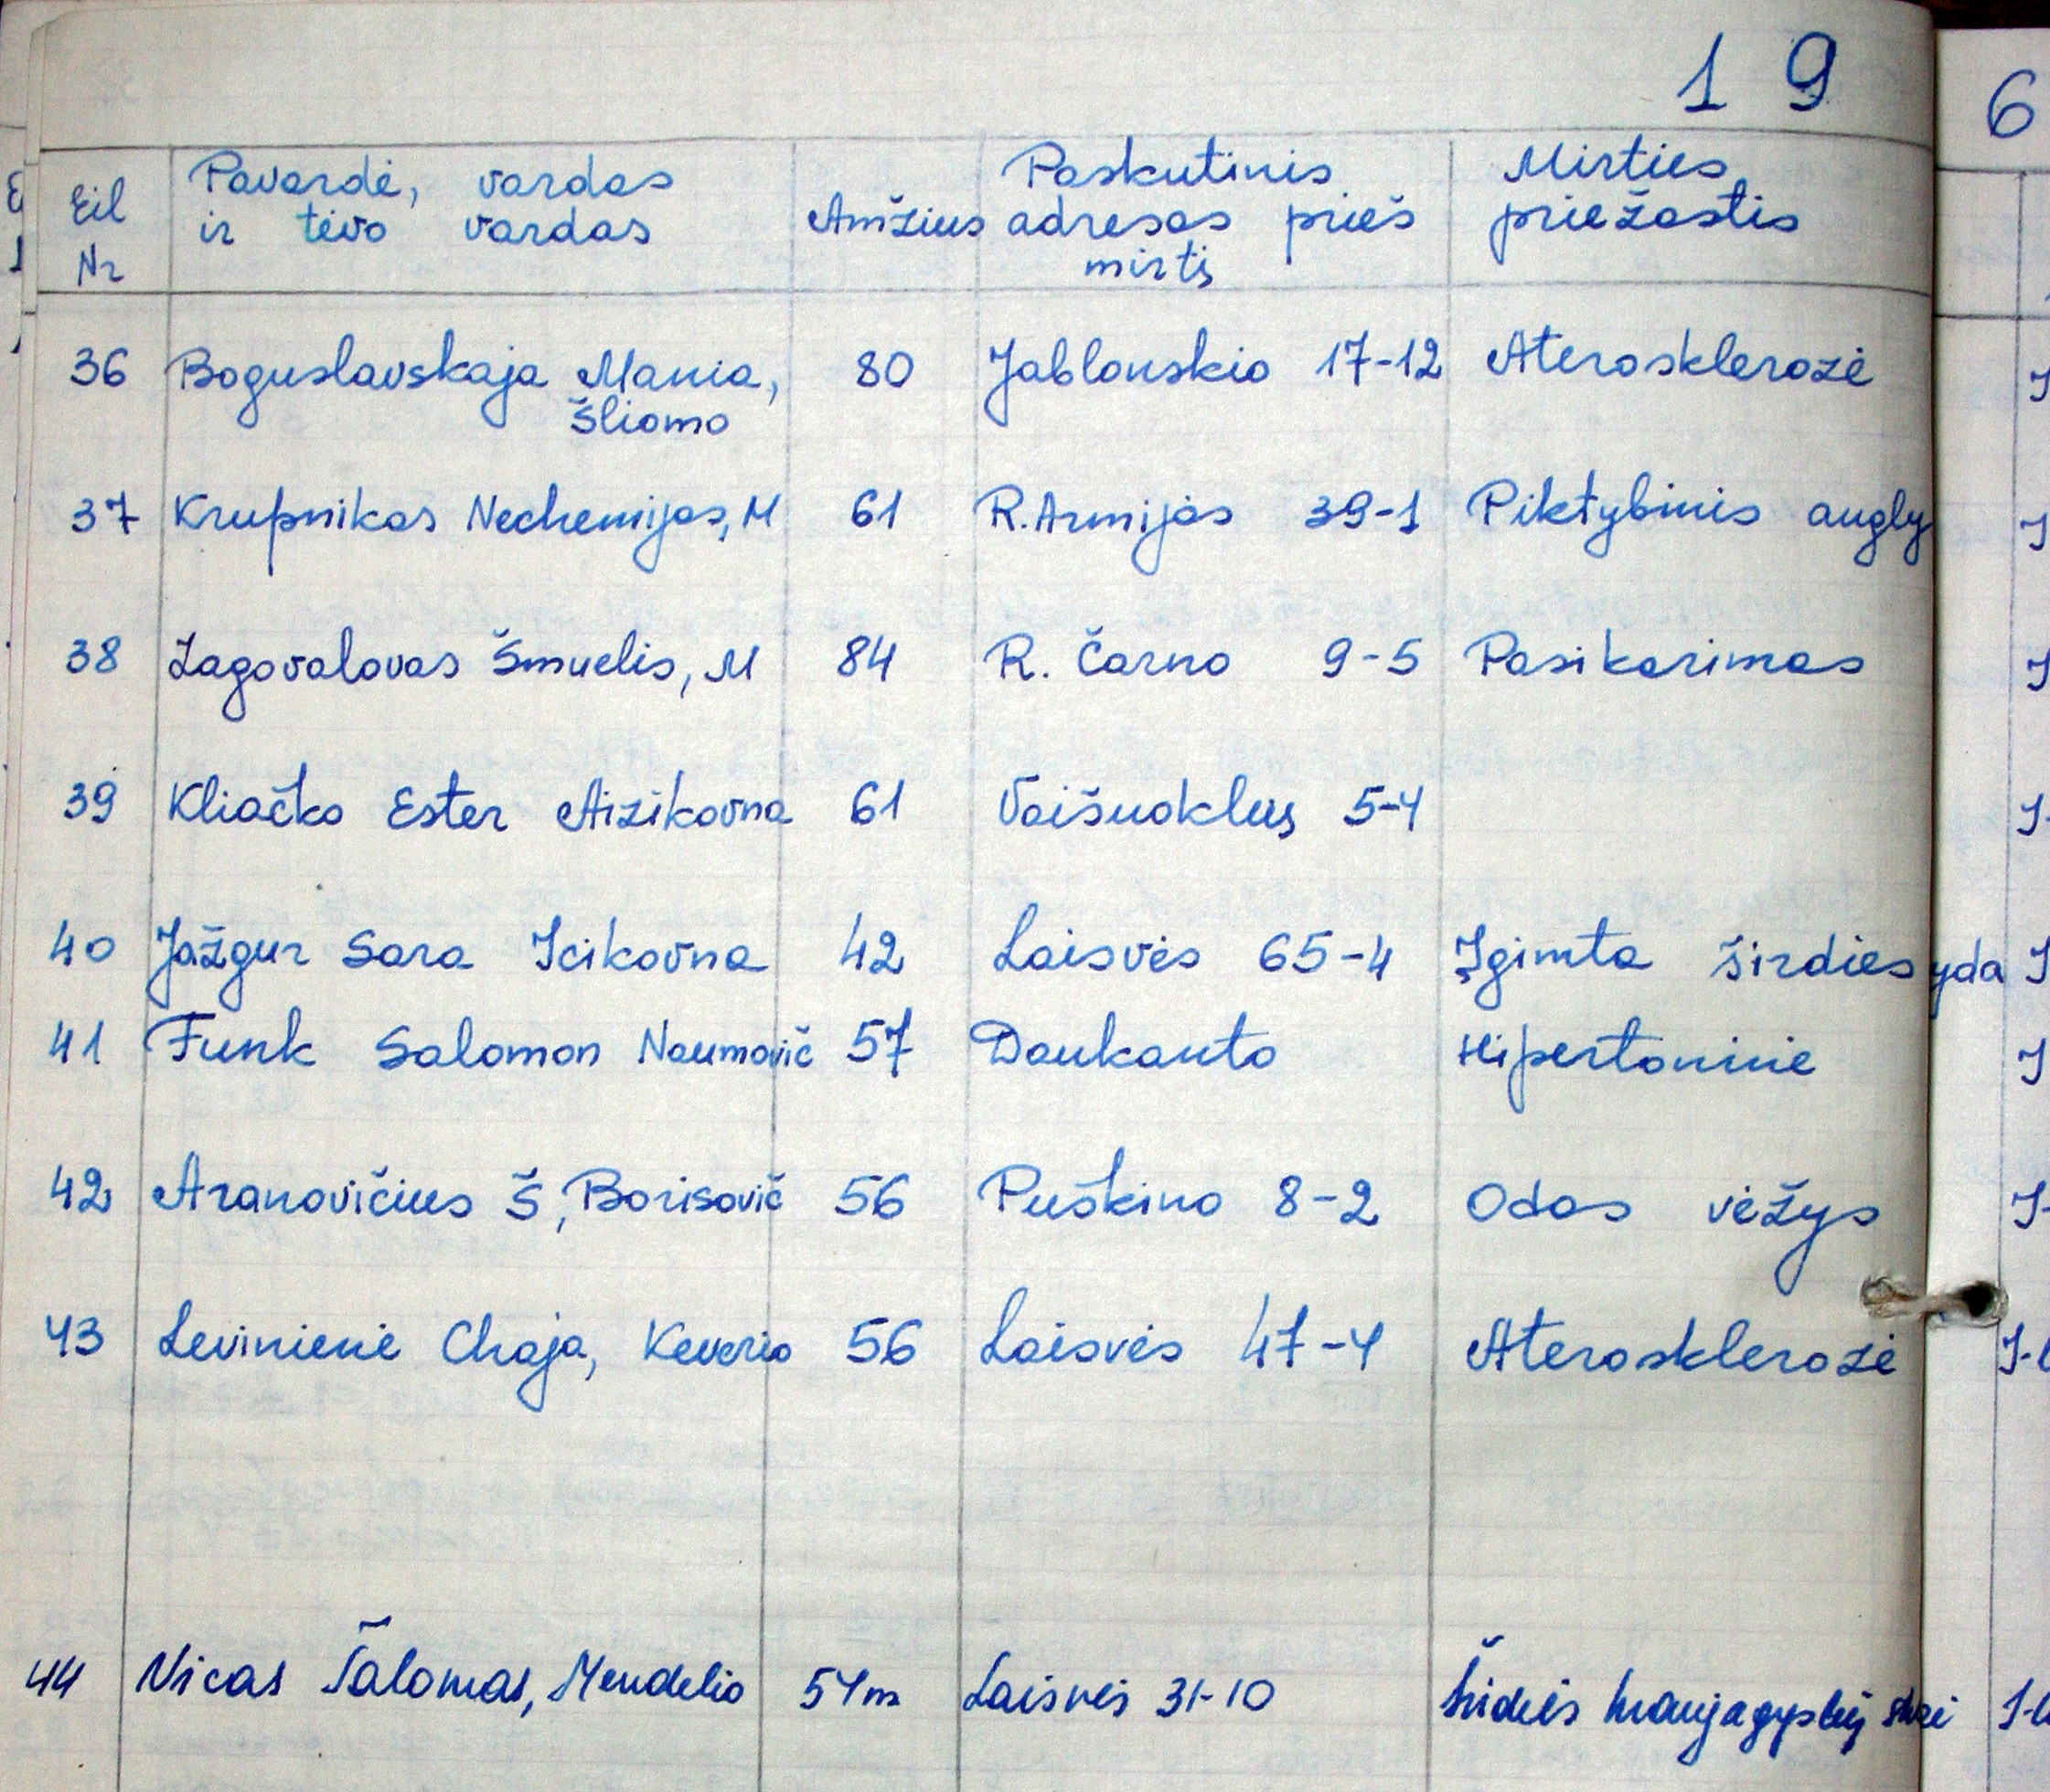 19
6
Eil Nr
Pavardė, vardas
ir tėvo vardas
Amžius
Paskutinis
adresas prieš
mirtį
Mirties
priežastis
36 Boguslavskaja Mania, 80 Jablonskio 17-12 Aterosklerozė
Šliomo
37 Krupnikas Nechemijas, M 61 R. Armijos 39-1 Piktybinis augly
38 Zagovalovas Šmuelis, M 84 R. Čarno 9-5 Pasikorimas
39 Kliačko Ester Aizikovna 61 Vaišnoklus 5-4
40 Jažgur Sara Icikovna 42 Laisvės 65-4 Įgimta širdies yda
41 Funk Salomon Naumovič 57 Daukanto Hipertoninė
42 Aranovičius Š, Borisovič 56 Puškino 8-2 Odos vėžys
43 Levinienė Chaja, Keverio 56 Laisvės 47-4 Aterosklerozė
44 Nicas Šalomas, Mendelio 54m Laisvės 31-10 Širdies kraujagyslių